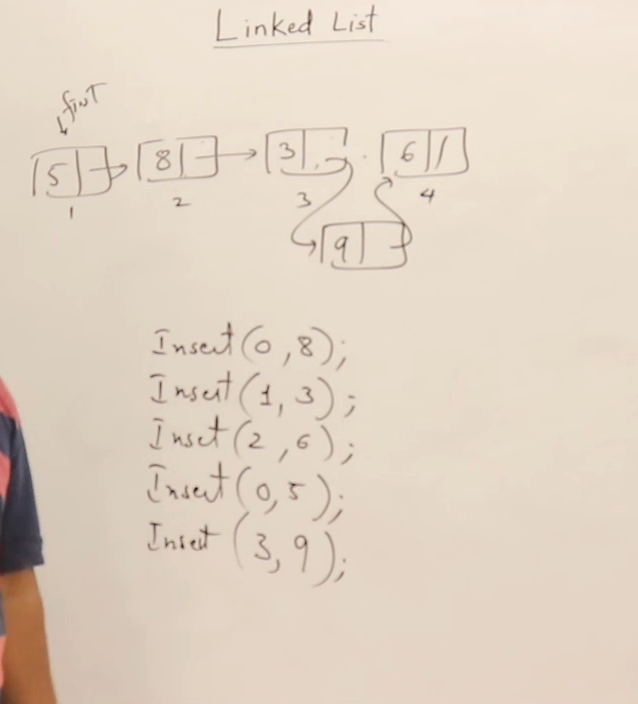 Linked List
first
5 8 3 6 /
1 2 3 4
9
Insert(0,8);
Insert(1,3);
Inset(2,6);
Insert(0,5);
Insert(3,9);